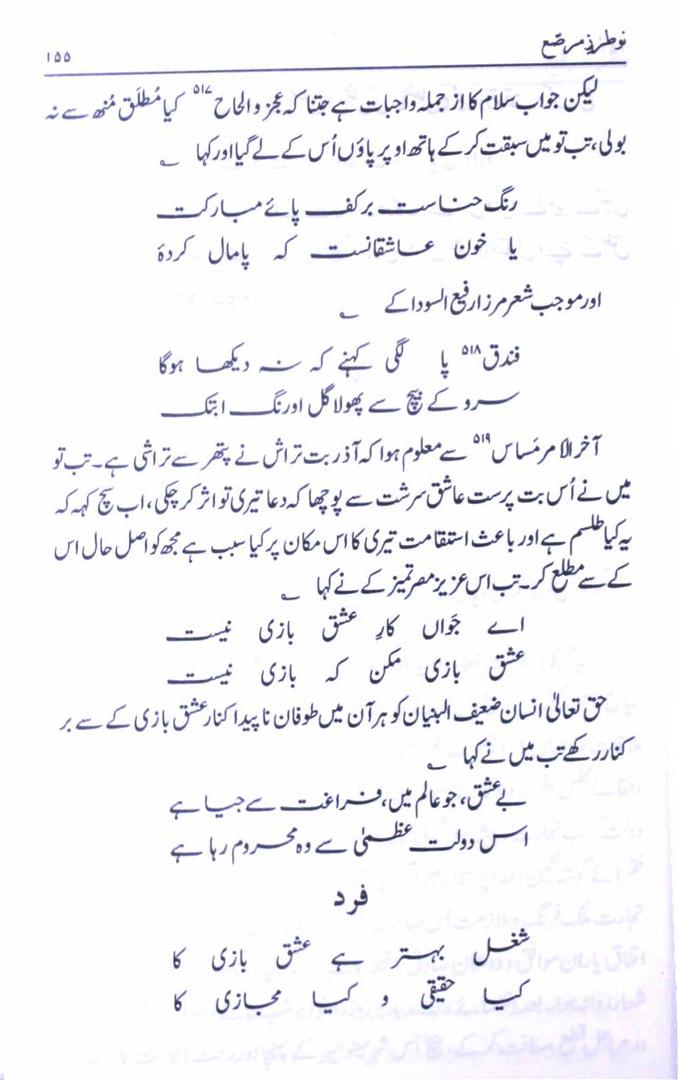 نو طرزِ مرصّع
۱۵۵
لیکن جواب سلام کا از جملہ واجبات ہے جتنا کہ عجز و الحاح ۵۱۷ کیا مُطلَق مُنھ سے نہ
بولی، تب تو میں سبقت کر کے ہاتھ اوپر پاؤں اُس کے لے گیا اور کہا ؎
رنگ حناست بر کف پائے مبارکت
یا خون عاشقانست کہ پامال کردۂ
اور موجب شعر مرزا رفیع السودا کے ؎
فندق ۵۱۸ پا لگی کہنے کہ نہ دیکھا ہوگا
سرو کے بیچ سے پھولا گل اورنگ ابتک
آخر الامر مَساس ۵۱۹ سے معلوم ہوا کہ آذر بت تراش نے پتھر سے تراشی ہے۔ تب تو
میں نے اُس بت پرست عاشق سرشت سے پوچھا کہ دعا تیری تو اثر کر چکی، اب سچ کہہ کہ
یہ کیا طلسم ہے اور باعث استقامت تیری کا اس مکان پر کیا سبب ہے مجھ کو اصل حال اس
کے سے مطلع کر۔ تب اس عزیز مصر تمیز کے نے کہا ؎
اے جَواں کارِ عشق بازی نیست
عشق بازی مکن کہ بازی نیست
حق تعالیٰ انسان ضعیف البنیان کو ہر آن میں طوفان ناپیدا کنار عشق بازی کے سے بر
کنار رکھے تب میں نے کہا ؎
بے عشق، جو عالم میں، فراغت سے جیا ہے
اس دولت عظمیٰ سے وہ محروم رہا ہے
فرد
شغل بہتر ہے عشق بازی کا
کیا حقیقی و کیا مجازی کا